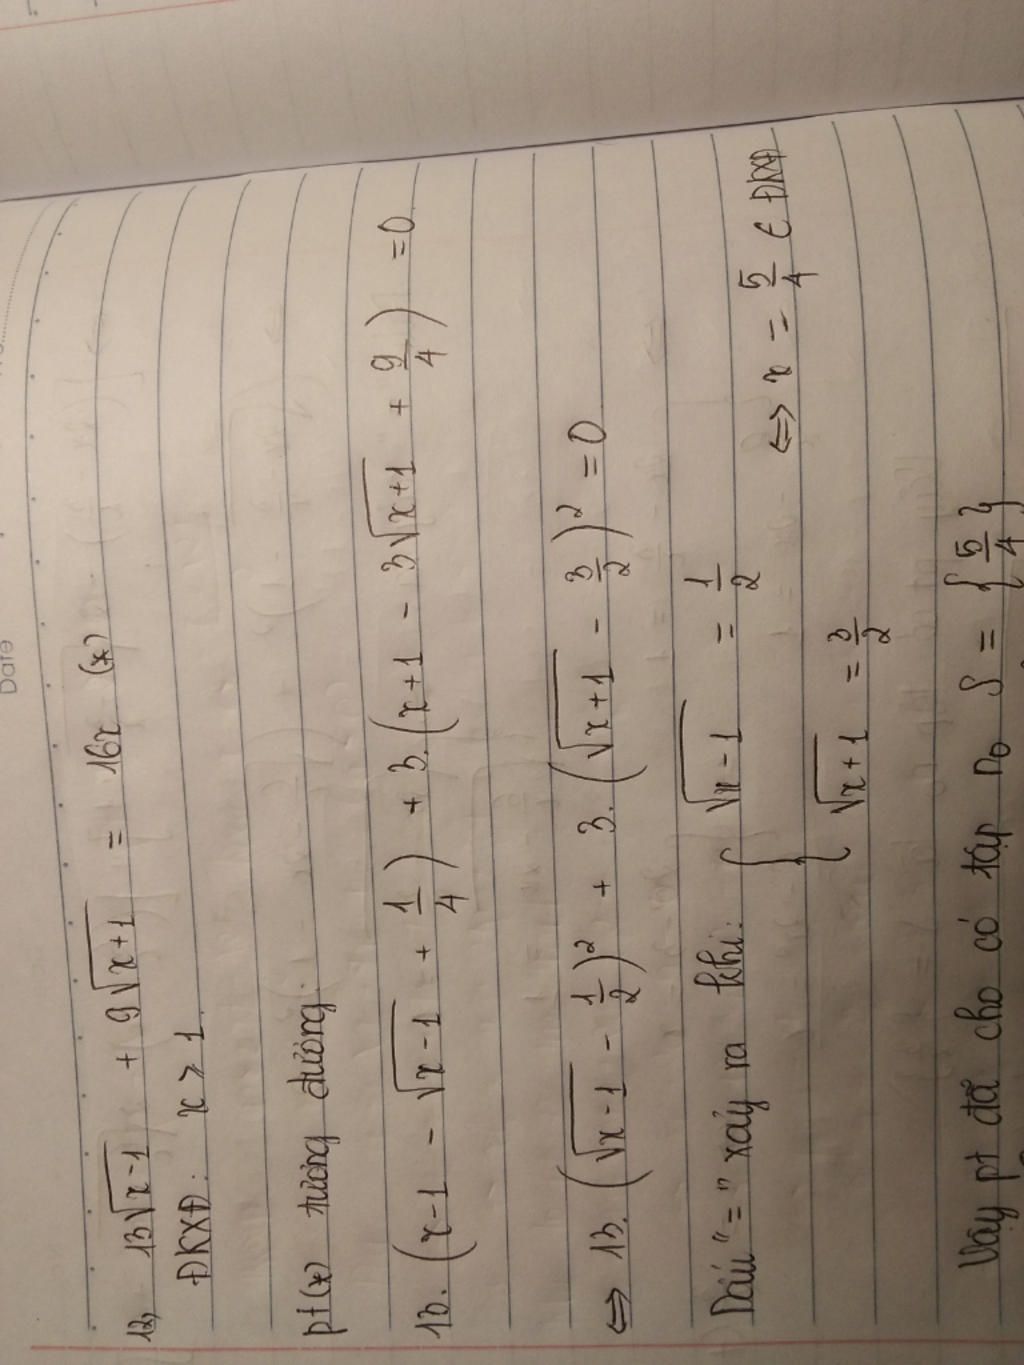 Date
12, 13√(x-1) + 9√(x+1) = 16x (*)
ĐKXĐ: x ⩾ 1
pt(*) tương đương:
13.(x-1 - √(x-1) + 1/4) + 3.(x+1 - 3√(x+1) + 9/4) = 0
⇔ 13.(√(x-1) - 1/2)² + 3.(√(x+1) - 3/2)² = 0
Dấu "=" xảy ra khi: { √(x-1) = 1/2
√(x+1) = 3/2
⇔ x = 5/4 ∈ ĐKXĐ
Vậy pt đã cho có tập n₀ S = {5/4}